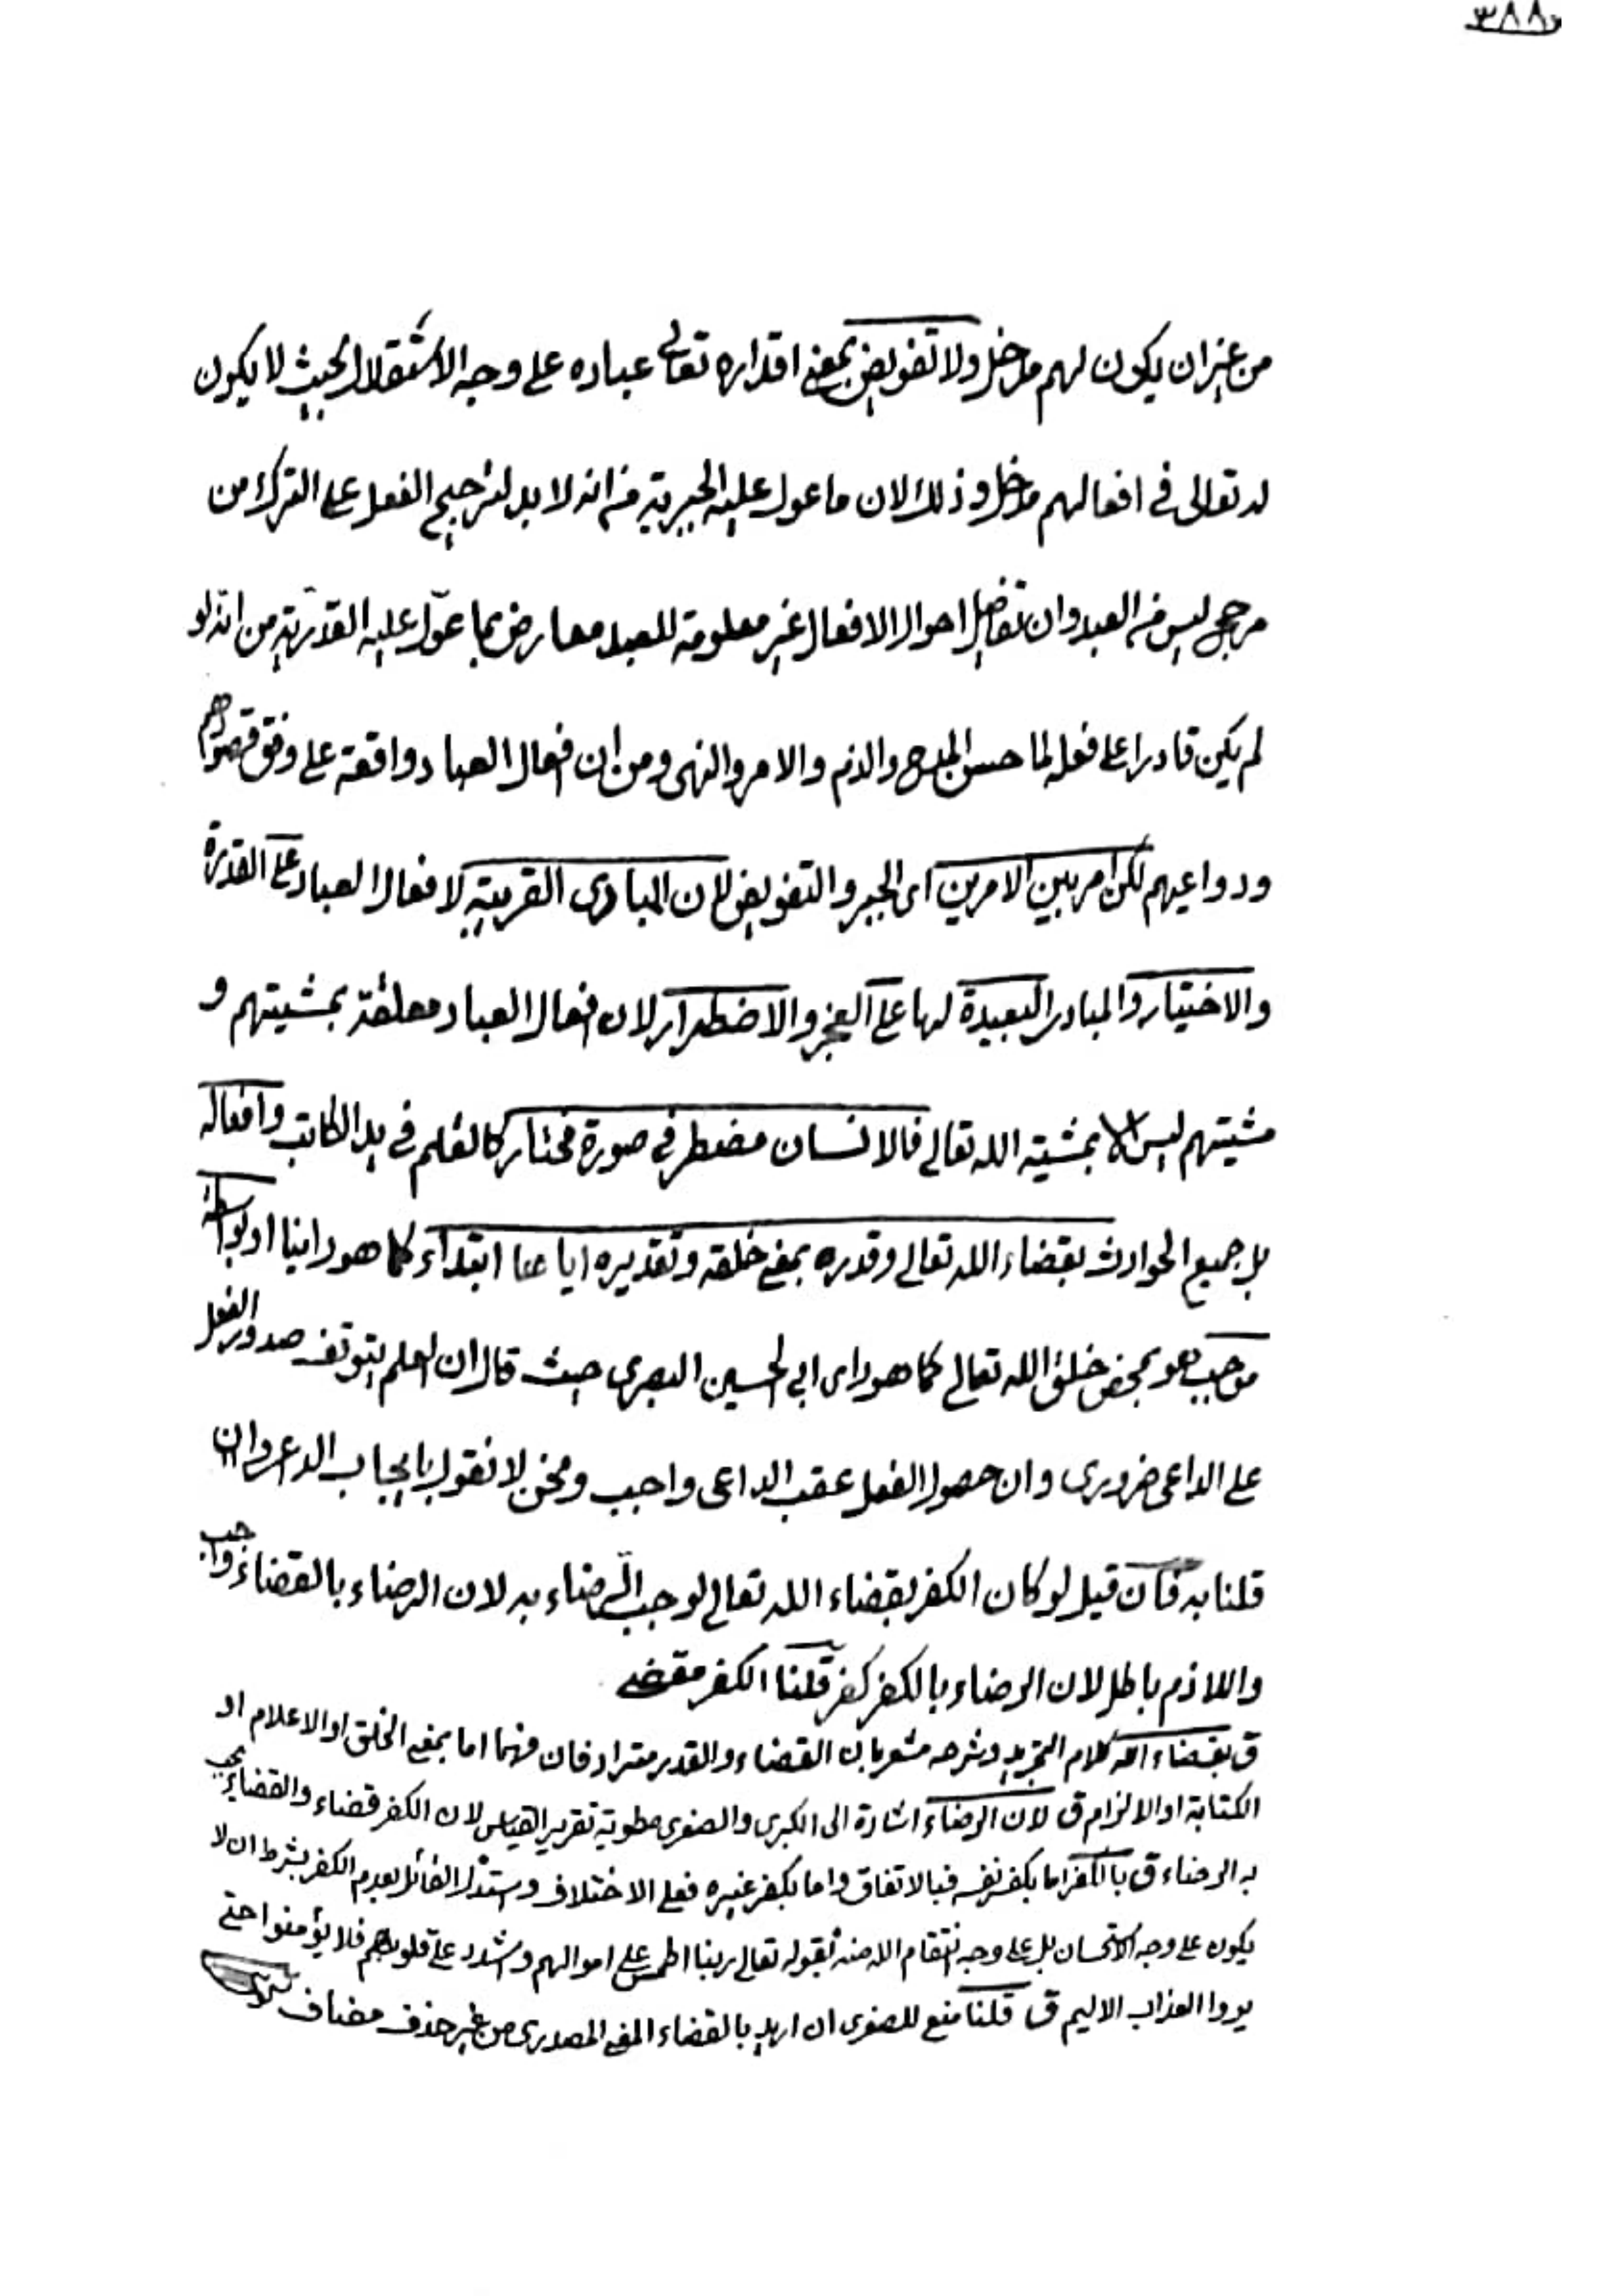 ٣٨٨
من غير ان يكون لهم مدخل ولا تفويض بمعنى اقداره تعالى عباده على وجه الاستقلال بحيث لا يكون
له تعالى فى افعالهم مدخل وذلك لان ما عول عليه الجبرية من انه لا بد لترجيح الفعل على الترك من
مرجح ليس من العبد وان تفاصيل احوال الافعال غير معلومة للعبد معارض بما عوّل عليه القدرية من انه لو
لم يكن قادرا على فعله لما حسن المدح والذم والامر والنهى ومن ان افعال العباد واقعة على وفق قصودهم
ودواعيهم لكن امر بين الامرين اى الجبر والتفويض لان المبادى القريبة لافعال العباد على القدرة
والاختيار والمبادى البعيدة لها على العجز والاضطرار لان افعال العباد معلقة بمشيتهم و
مشيتهم ليس الا بمشية الله تعالى فالانسان مضطر فى صورة مختار كالقلم فى يد الكاتب وافعاله
بل جميع الحوادث بقضاء الله تعالى وقدره بمعنى خلقه وتقديره اياها ابتداء كما هو راينا او بواسطة
موجب هو بمحض خلق الله تعالى كما هو راى ابى الحسين البصرى حيث قال ان العلم بتوقف صدور الفعل
على الداعى ضرورى وان حصول الفعل عقب الداعى واجب ونحن لا نقول بايجاب الداعى وان
قلنا به فان قيل لو كان الكفر بقضاء الله تعالى لوجب الرضاء به لان الرضاء بالقضاء واجب
واللازم باطل لان الرضاء بالكفر كفر قلنا الكفر مقضى
ق بقضاء الله كلام التجريد وشرحه مشعر بان القضاء والقدر مترادفان فهما اما بمعنى الخلق او الاعلام او
الكتابة او الالزام ق لان الرضاء اشارة الى الكبرى والصغرى مطوية تقرير القياس لان الكفر قضاء والقضاء يجب
به الرضاء ق بالكفر اما بكفر نفسه فبالاتفاق واما بكفر غيره فعلى الاختلاف واستدل القائل بعدم الكفر بشرط ان لا
يكون على وجه الاستحسان بل على وجه انتقام الله منه بقوله تعالى ربنا اطمس على اموالهم واشدد على قلوبهم فلا يؤمنوا حتى
يروا العذاب الاليم ق قلنا منع للصغرى ان اريد بالقضاء المعنى المصدرى من غير حذف مضاف